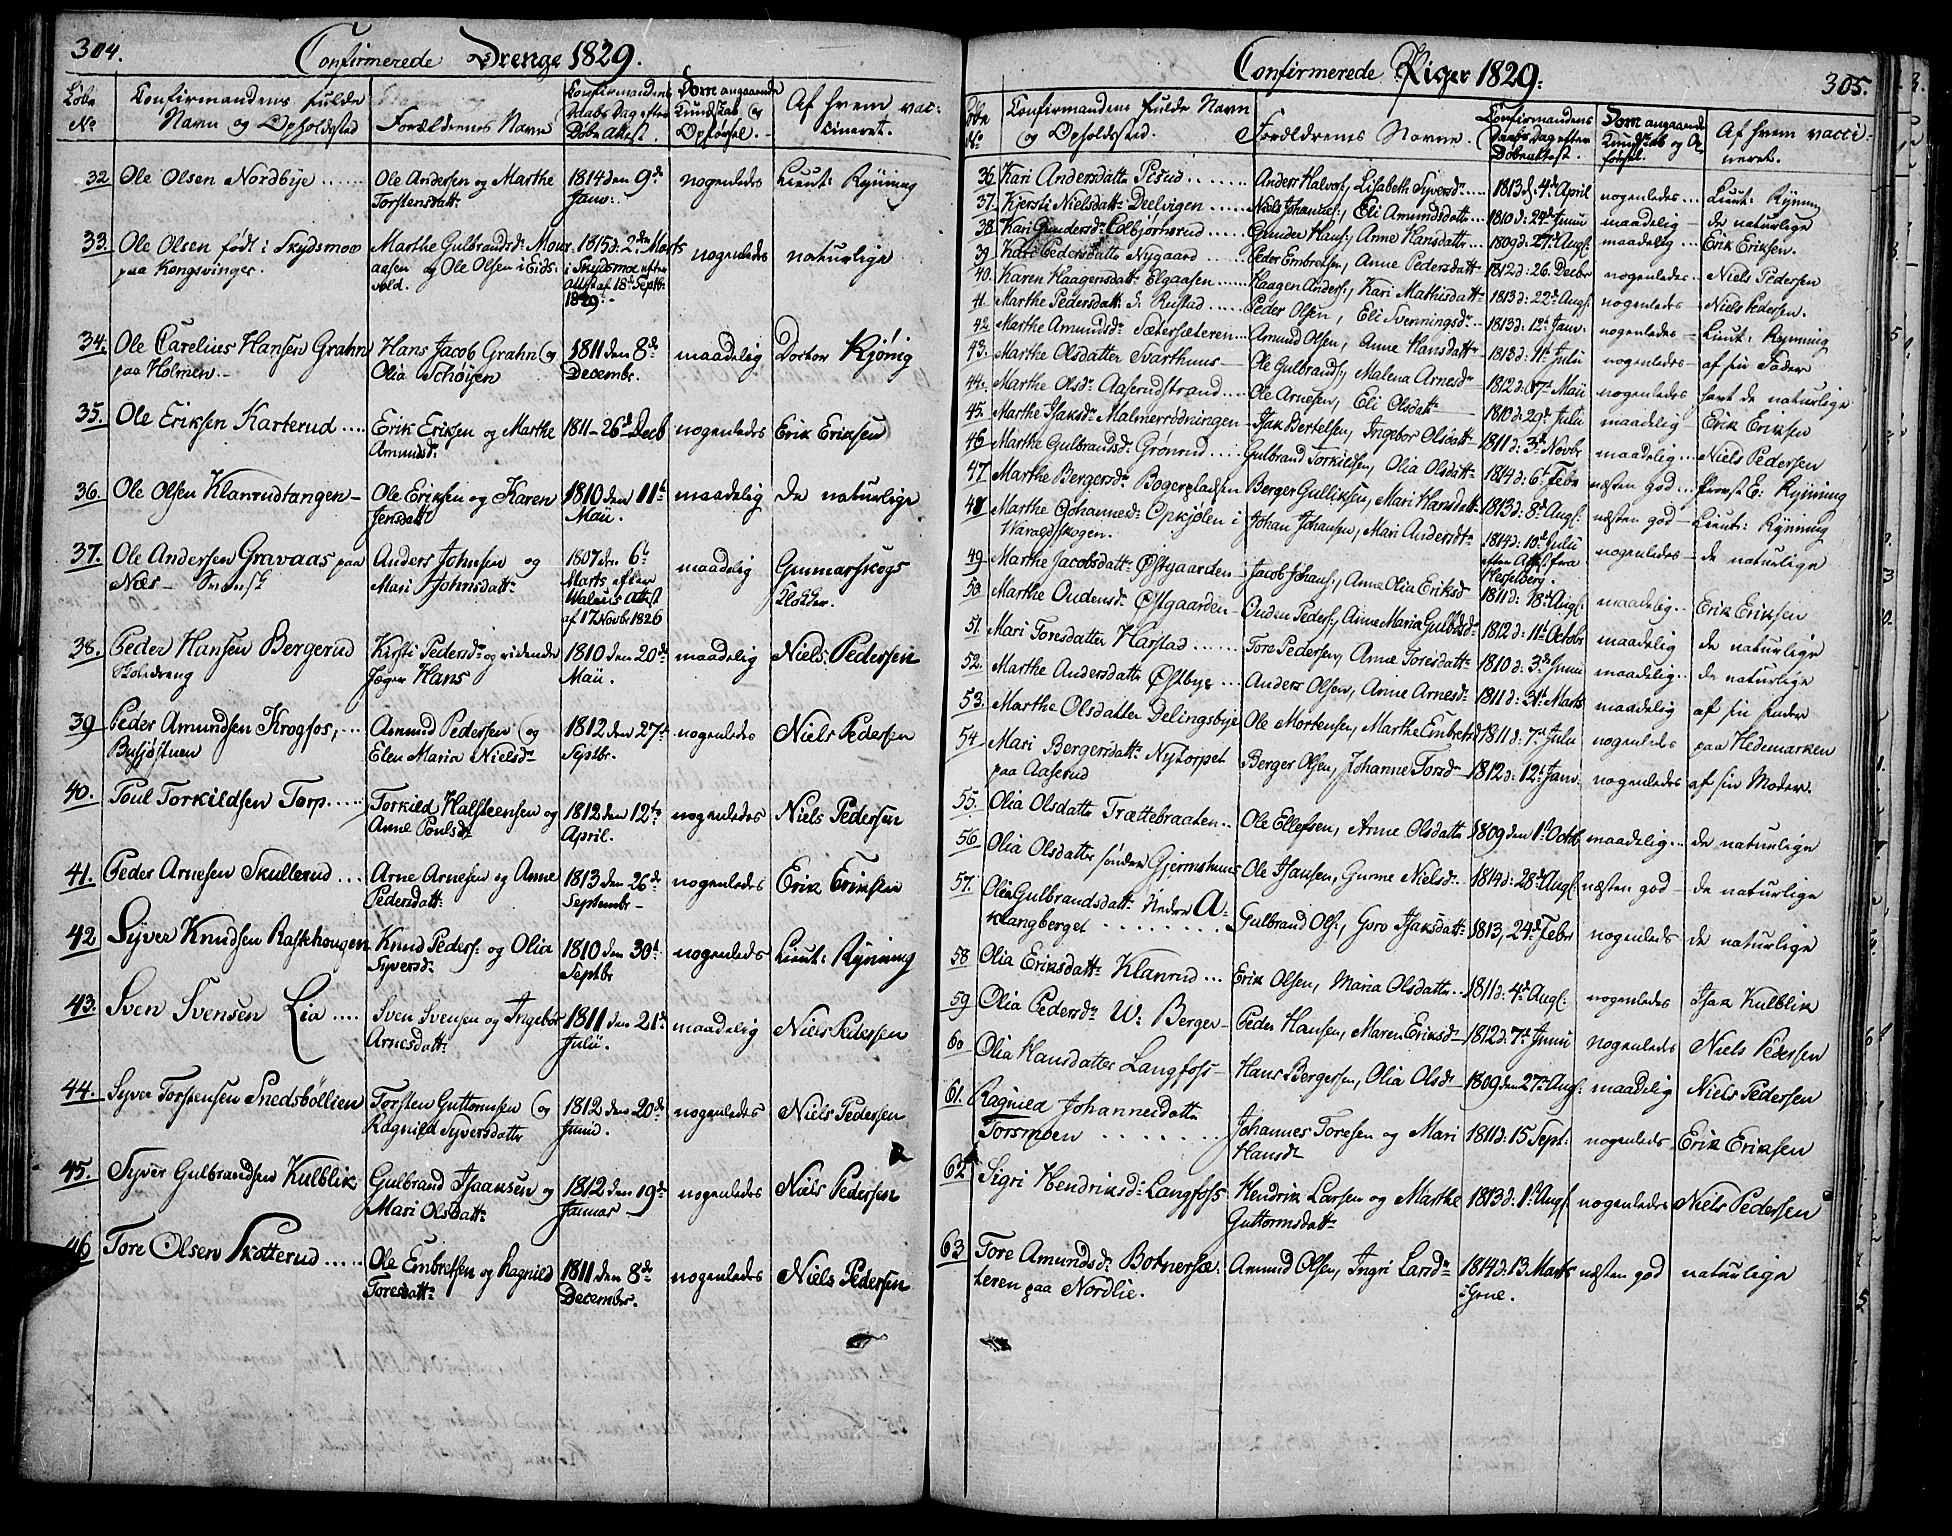 304.
Confirmerede Drenge 1829.
Løbe No
Confirmandens fulde Navn og Opholdsted
Forældrenes Navn
Confirmandens Daabs Dag efter Døbe Attest.
Dom angaaende Kundskab og Opførsel.
Af hvem vaccineret.
32 Ole Olsen Nordbye ...... Ole Andersen og Marthe 1814 den 9de nogenledes Lieut: Rynning
Torstensdatt: Janv:
33. Ole Olsen født i Skydsmoe Marthe Gulbrandsd: Moer- 1815 d: 2den Marts nogenledes naturlige
paa Kongsvinger. aasen og Ole Olsen i Eids- i Skydsmoe efter
vold. Attest af 18de Septbr
1829.
34. Ole Carelius Hansen Grahn Hans Jacob Grahn og 1811 den 8de maadelig Doctor Kjønig
paa Holmen. Olia Schøyen Decembr.
35. Ole Eriksen Karterud ..... Erik Eriksen og Marthe 1811 - 26d Decb nogenledes Erik Eriksen
Amundsd:
36. Ole Olsen Klanrudtangen - Ole Eriksen og Karen 1810 den 11te maadelig De naturlige
Jensdatt: Maii.
37. Ole Andersen Gravaas paa Anders Johnsen og 1807 den 6te maadelig Gunnarskogs
Næs - Mari Johnsdatt: Marts efter Klokker.
Attest
af 17 Novbr 1826
38. Peder Hansen Bergerud Kirsti Pedersd: og ridende 1810 den 20de maadelig Niels Pedersen
Jæger Hans Maii.
39 Peder Amundsen Krogfos, ... Amund Pedersen og 1812 den 27de nogenledes Niels Pedersen
Elen Maria Nielsd: Septbr.
40. Poul Torkildsen Torp..... Torkild Halfsteensen og 1812 den 12te nogenledes Niels Pedersen
Anne Poulsdt: April.
41. Peder Arnesen Skullerud ... Arne Arnesen og Anne 1813 den 26de nogenledes Erik Eriksen
Pedersdatt: Septembr -
42 Syver Knudsen Raskehougen Knud Peders: og Olia 1810 den 30te nogenledes Lieut: Rynning
Syversd: Septbr
43. Sven Svensen Lia .... Sven Svensen og Ingebor 1811 den 21de maadelig Niels Pedersen
Arnesdatt: Julii.
44. Syver Torstensen Snedsböllien Torsten Guttormsen og 1812 den 20de nogenledes Niels Pedersen
Ragnild Syversdatte Junii.
45. Syver Gulbrandsen Kulblik Gulbrand Isaaksen og 1812 den 19de nogenledes Niels Pedersen
Mari Olsdatt: Januar -
46 Tore Olsen Skotterud ..... Ole Embretsen og Ragnild 1811 den 8de nogenledes Niels Pedersen
Toresdatt: December.
Confirmerede Piger 1829.
305.
Løbe No
Confirmandens fulde Navn og Opholdsted.
Forældrenes Navne.
Confirmandens Daabs Dag efter Døbeattest.
Dom angaaende Kundskab og Opførsel.
Af hvem vaccineret.
36 Kari Andersdatte Pisud ....... Anders Halvors:, Lisabeth Syversd: ..... 1813 d: 4de April nogenledes ... Lieut: Rynning
37. Kjersti Nielsdatt: Deelvigen ...... Niels Johannes:, Eli Amundsdatte ... 1810 d: 24de Junii maadelig - de naturlige
38. Kari Gundersd: Colbjørnsrud ...... Gunder Hans:, Anne Hansdatte ... 1809 d: 27de Augs: maadelig ... Erik Eriksen.
39 Kari Pedersdatte Nygaard ...... Peder Embretsen, Anne Pedersdatt: 1812 d: 26. Decbr nogenledes - Niels Pedersen
40. Karen Haagensdatt: Elgaasen ...... Haagen Anders:, Kari Mathisdatt: 1813 d: 22de Augs: nogenledes Niels Pedersen.
41. Marthe Pedersdatt: S. Rustad ...... Peder Olsen, Eli Svenningsd: ... 1813 d: 12te Janv: nogenledes - Lieut: Rynning
42. Marthe Amundsd: Sætersæteren... Amund Olsen, Anne Hansdatt: 1813 d: 11te Julii nogenledes af sin Fader
43. Marthe Olsdatter Svarthuus - Ole Gulbrands:, Malena Arnesd: 1812 d: 17de Maii nogenledes samt de naturlige
44. Marthe Olsd: Aaserudstrand .... Ole Arnesen, Eli Olsdatt: 1810 d: 29de Julii maadelig - Erik Eriksen
45. Marthe Isaksd: Malmerrödningen - Isak Bertelsen, Ingebor Olsdatt: 1811 d: 3de Novbr maadelig ... Niels Pedersen
46 Marthe Gulbrandsd: Grønrud .... Gulbrand Torkildsen, Olia Olsdatt: 1814 d: 6te Febr næsten god ... Provst E: Rynning
47 Marthe Bergersd: Bogerpladsen Berger Gulliksen, Mari Hansdatt: 1813 d: 8de Augs: næsten god - Lieut: Rynning
48 Marthe Johannesd: Opkjølen i Johan Johansen, Mari Andersdt: 1814 d: 10de Julii nogenledes - de naturlige
Varaldskogen. efter Attest fra
Hesselberg.
49 Marthe Jacobsdatt: Østgaarden - Jacob Johans:, Anne Olia Eriksd: 1811 d: 18de Augs: maadelig .. Erik Eriksen
50 Marthe Oudensd: Østgaarden - Ouden Peders:, Anne Maria Gulbdsd: 1812 d: 11te Octobr maadelig de naturlige
51. Mari Toresdatter Harstad ...... Tore Pedersen, Anne Toresdatt: 1810 d: 3de Junii maadelig .. de naturlige
52. Marthe Andersdatte Østbye ... Anders Olsen, Anne Arnesd: 1811 d: 31te Marts maadelig af sin Fader
53. Marthe Olsdatter Delingsbye Ole Mortensen, Marthe Embretsd: 1811 d: 7de Julii nogenleds paa Hedemarken
54 Mari Bergersdatt: Nytorpet Berger Olsen, Johanne Torsd: - 1812 d: 12te Janv: nogenledes af sin Moder.
paa Aaserud
55. Olia Olsdatte Trættebraaten .. Ole Ellefsen, Anne Olsdatte 1809 den 1te Octbr maadelig ... de naturlige
56 Olia Olsdatter söndre Gjermshuus Ole Hansen, Gunne Nielsd: .. 1814 d: 28de Augs: næsten god - de naturlige
57. Olia Gulbrandsdatt: Nedre A- Gulbrand Ols:, Goro Isaksdatt: 1813, 24de Febr nogenleds de naturlige
klangberget ........
58 Olia Eriksdatt: Klanrud ... Erik Olsen, Maria Olsdatte .. 1811 d: 4de Augs: nogenledes Isak Kulblik
59 Olia Pedersd: W: Berger - Peder Hansen, Maren Eriksd: - 1812 d: 7de Junii nogenledes Niels Pedersen
60 Olia Hansdatter Langfoss - Hans Bergersen, Olia Olsd: - 1809 den 27de Augs: maadelig Niels Pedersen
61. Ragnild Johannesdatte Johannes Toresen og Mari 1811 d: 15 Sept: nogenledes - Erik Eriksen
Torsmoen ....... Hansd:
62 Sigri Hendriksd: Langfoss Hendrik Larsen og Marthe 1813 d: 1te Augs nogenledes Niels Pedersen
Guttormsdatt:
63 Tore Amundsd: Botnersæ- Amund Olsen, Ingri Larsd: 1814 d: 13. Marts næsten god naturlige
teren paa Nordlie. i Grue.